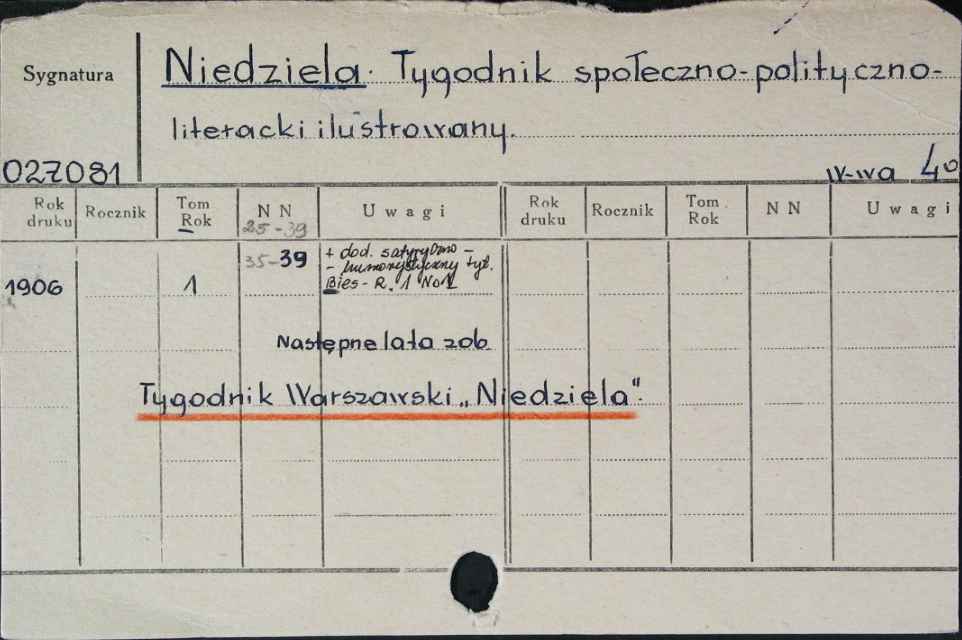 Sygnatura
Niedziela. Tygodnik społeczno-polityczno-
literacki ilustrowany.
027081
W-wa 4°
Rok druku Rocznik Tom Rok NN Uwagi Rok druku Rocznik Tom Rok NN Uwagi
25-39
35-39
+ dod. satyryczno-
- humorystyczny tyt.
1906 1 Bies - R. 1 No 1
Następne lata zob.
Tygodnik Warszawski „Niedziela".